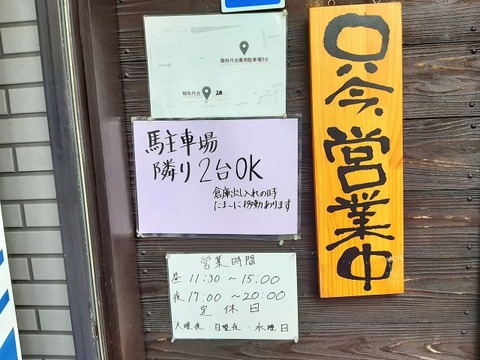 麺処丹治専用駐車場5台
麺処丹治 28
駐車場
隣り 2台OK
倉庫出し入れの時
たま〜に移動あります
営業時間
昼 11:30 〜 15:00
夜 17:00 〜 20:00
定休日
火曜夜・日曜夜・水曜日
只今営業中